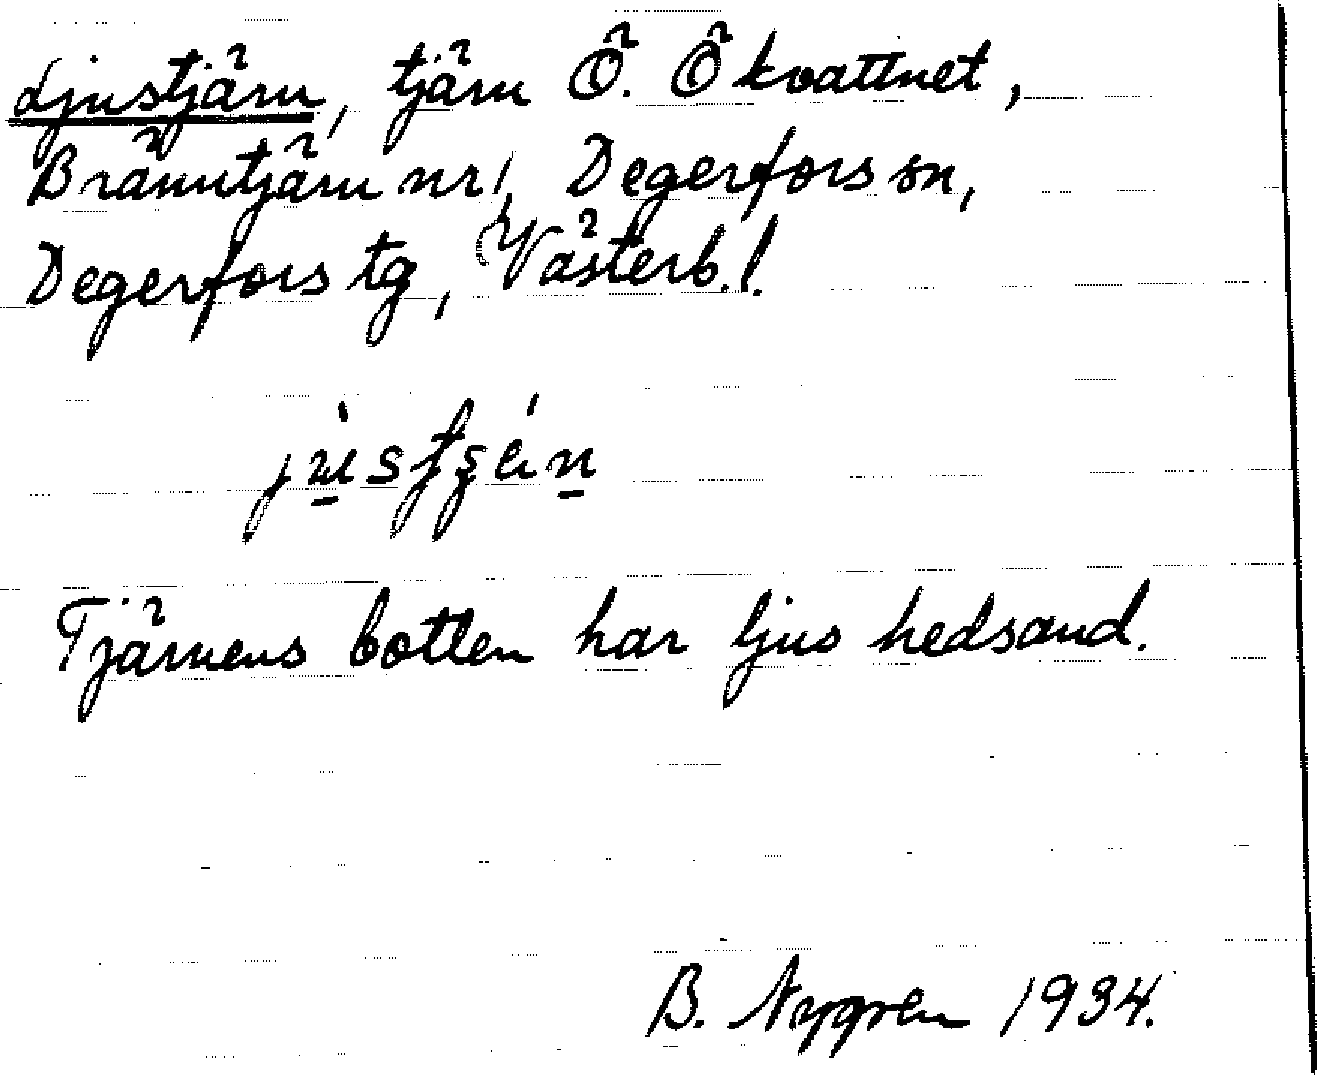 Ljustjärn, tjärn Ö. Ökvattnet,
Bränntjärn nr 1, Degerfors sn,
Degerfors tg, Västerb. l.
Tjärnens botten har ljus hedsand.
B. Nygren 1934.